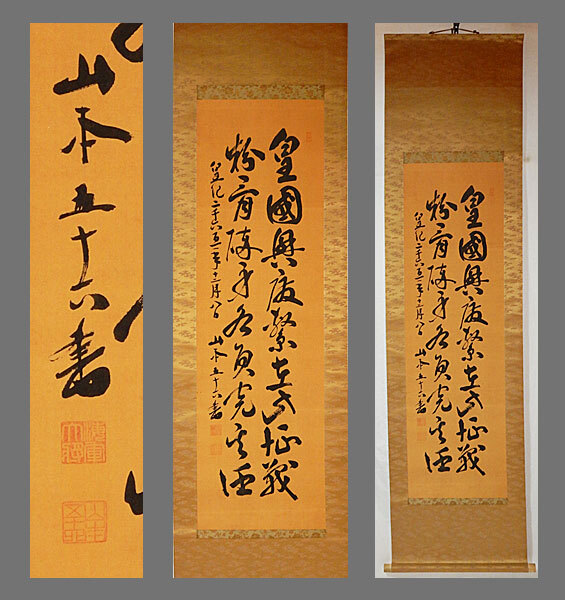 山本五十六書
皇國興廢繋在此征戰
粉骨砕身各員完其任
皇紀二千六百一年十二月八日 山本五十六書
皇國興廢繋在此征戰
粉骨砕身各員完其任
皇紀二千六百一年十二月八日 山本五十六書